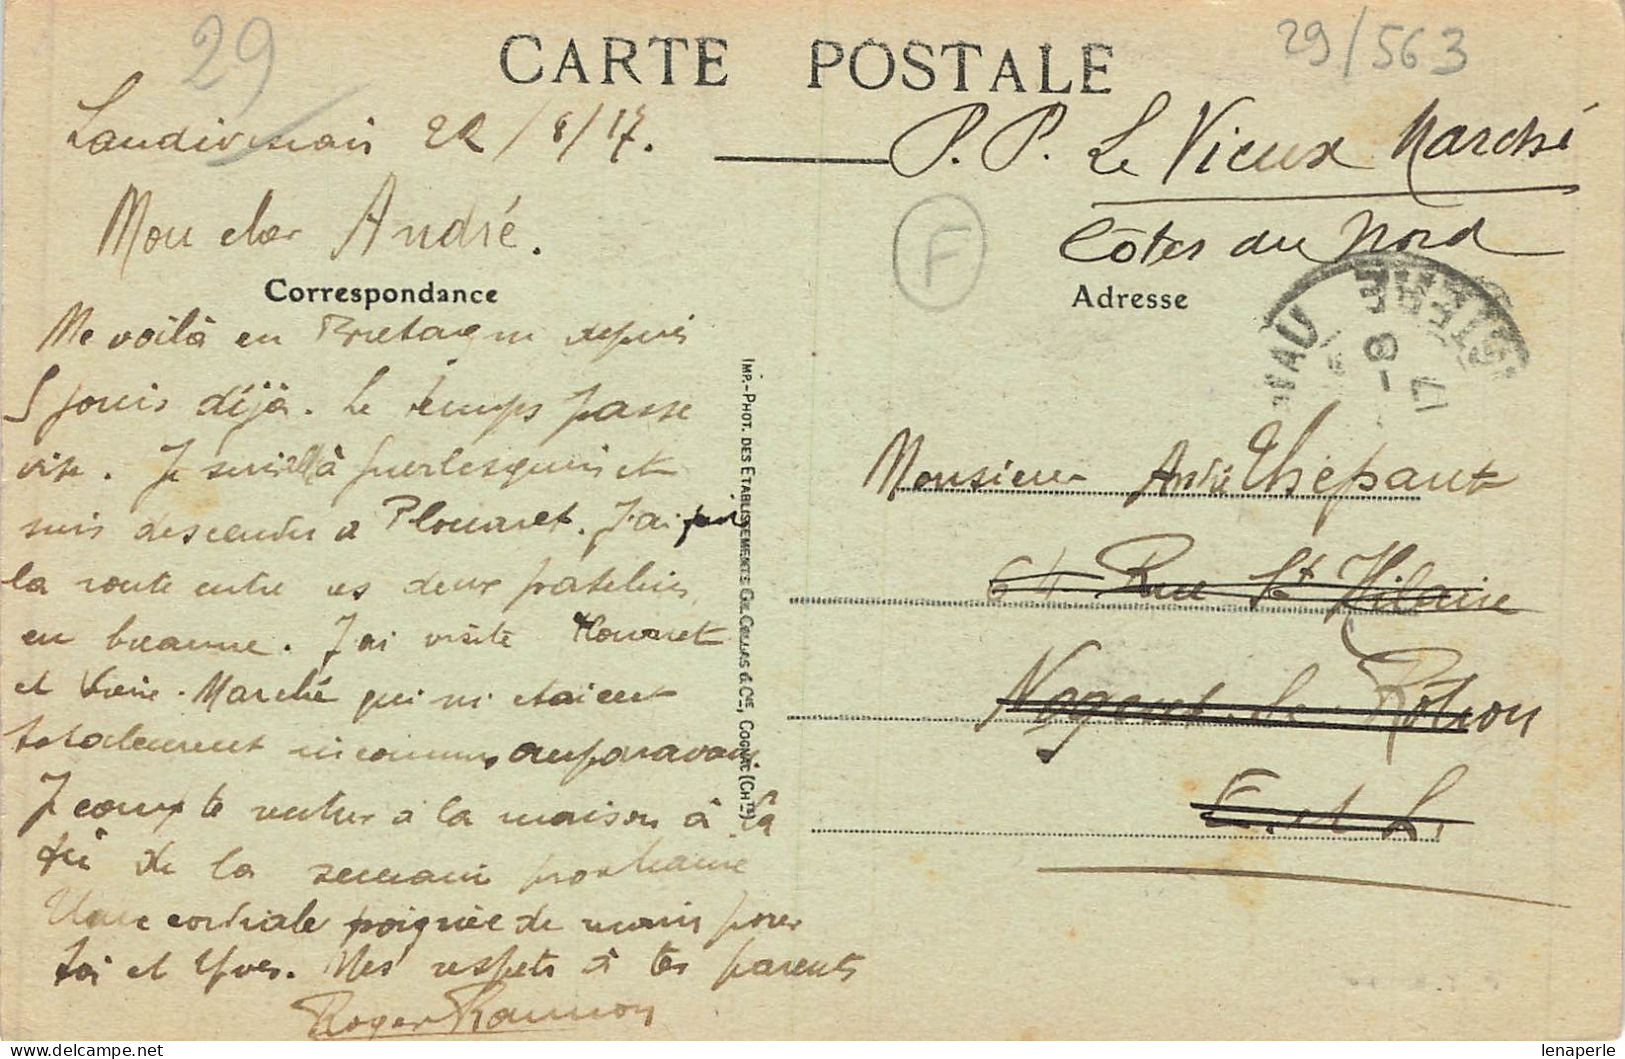 29
29/563
CARTE POSTALE
Landivisiau 22/8/17.
Mon cher André.
Correspondance
Me voilà en Bretagne depuis
5 jours déjà. Le temps passe
vite. Je suis allé à Guerlesquin et
suis descendu à Plouaret. J'ai fait
la route entre ces deux patelins
en bécanne. J'ai visité Plouaret
et Vieux-Marché qui m'étaient
totalement inconnus auparavant
Je compte rentrer à la maison à la
fin de la semaine prochaine
Une cordiale poignée de main pour
toi et Yves. Mes respets à tes parents
Roger Rannou
IMP.-PHOT. DES ETABLISSEMENTS CH. COLLAS & Cie, COGNAC (CHte)
P.P. Le Vieux Marché
Côtes du Nord
F
Adresse
17 - 8
Monsieur André Thépaut
64 Rue St Hilaire
Nogent-le-Rotrou
E. et L.
lenaperle